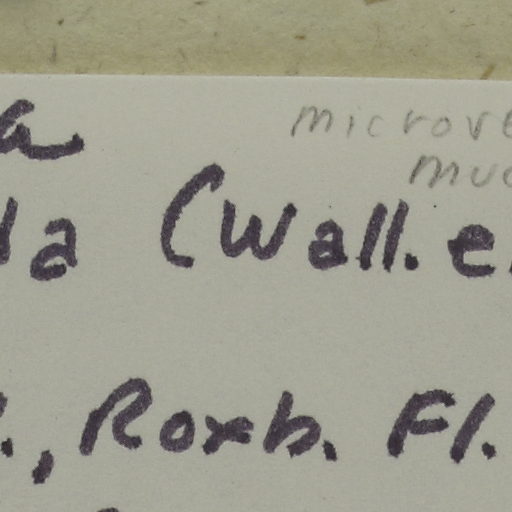 a
microve
muc
la (Wall. e
., Roxb. Fl.